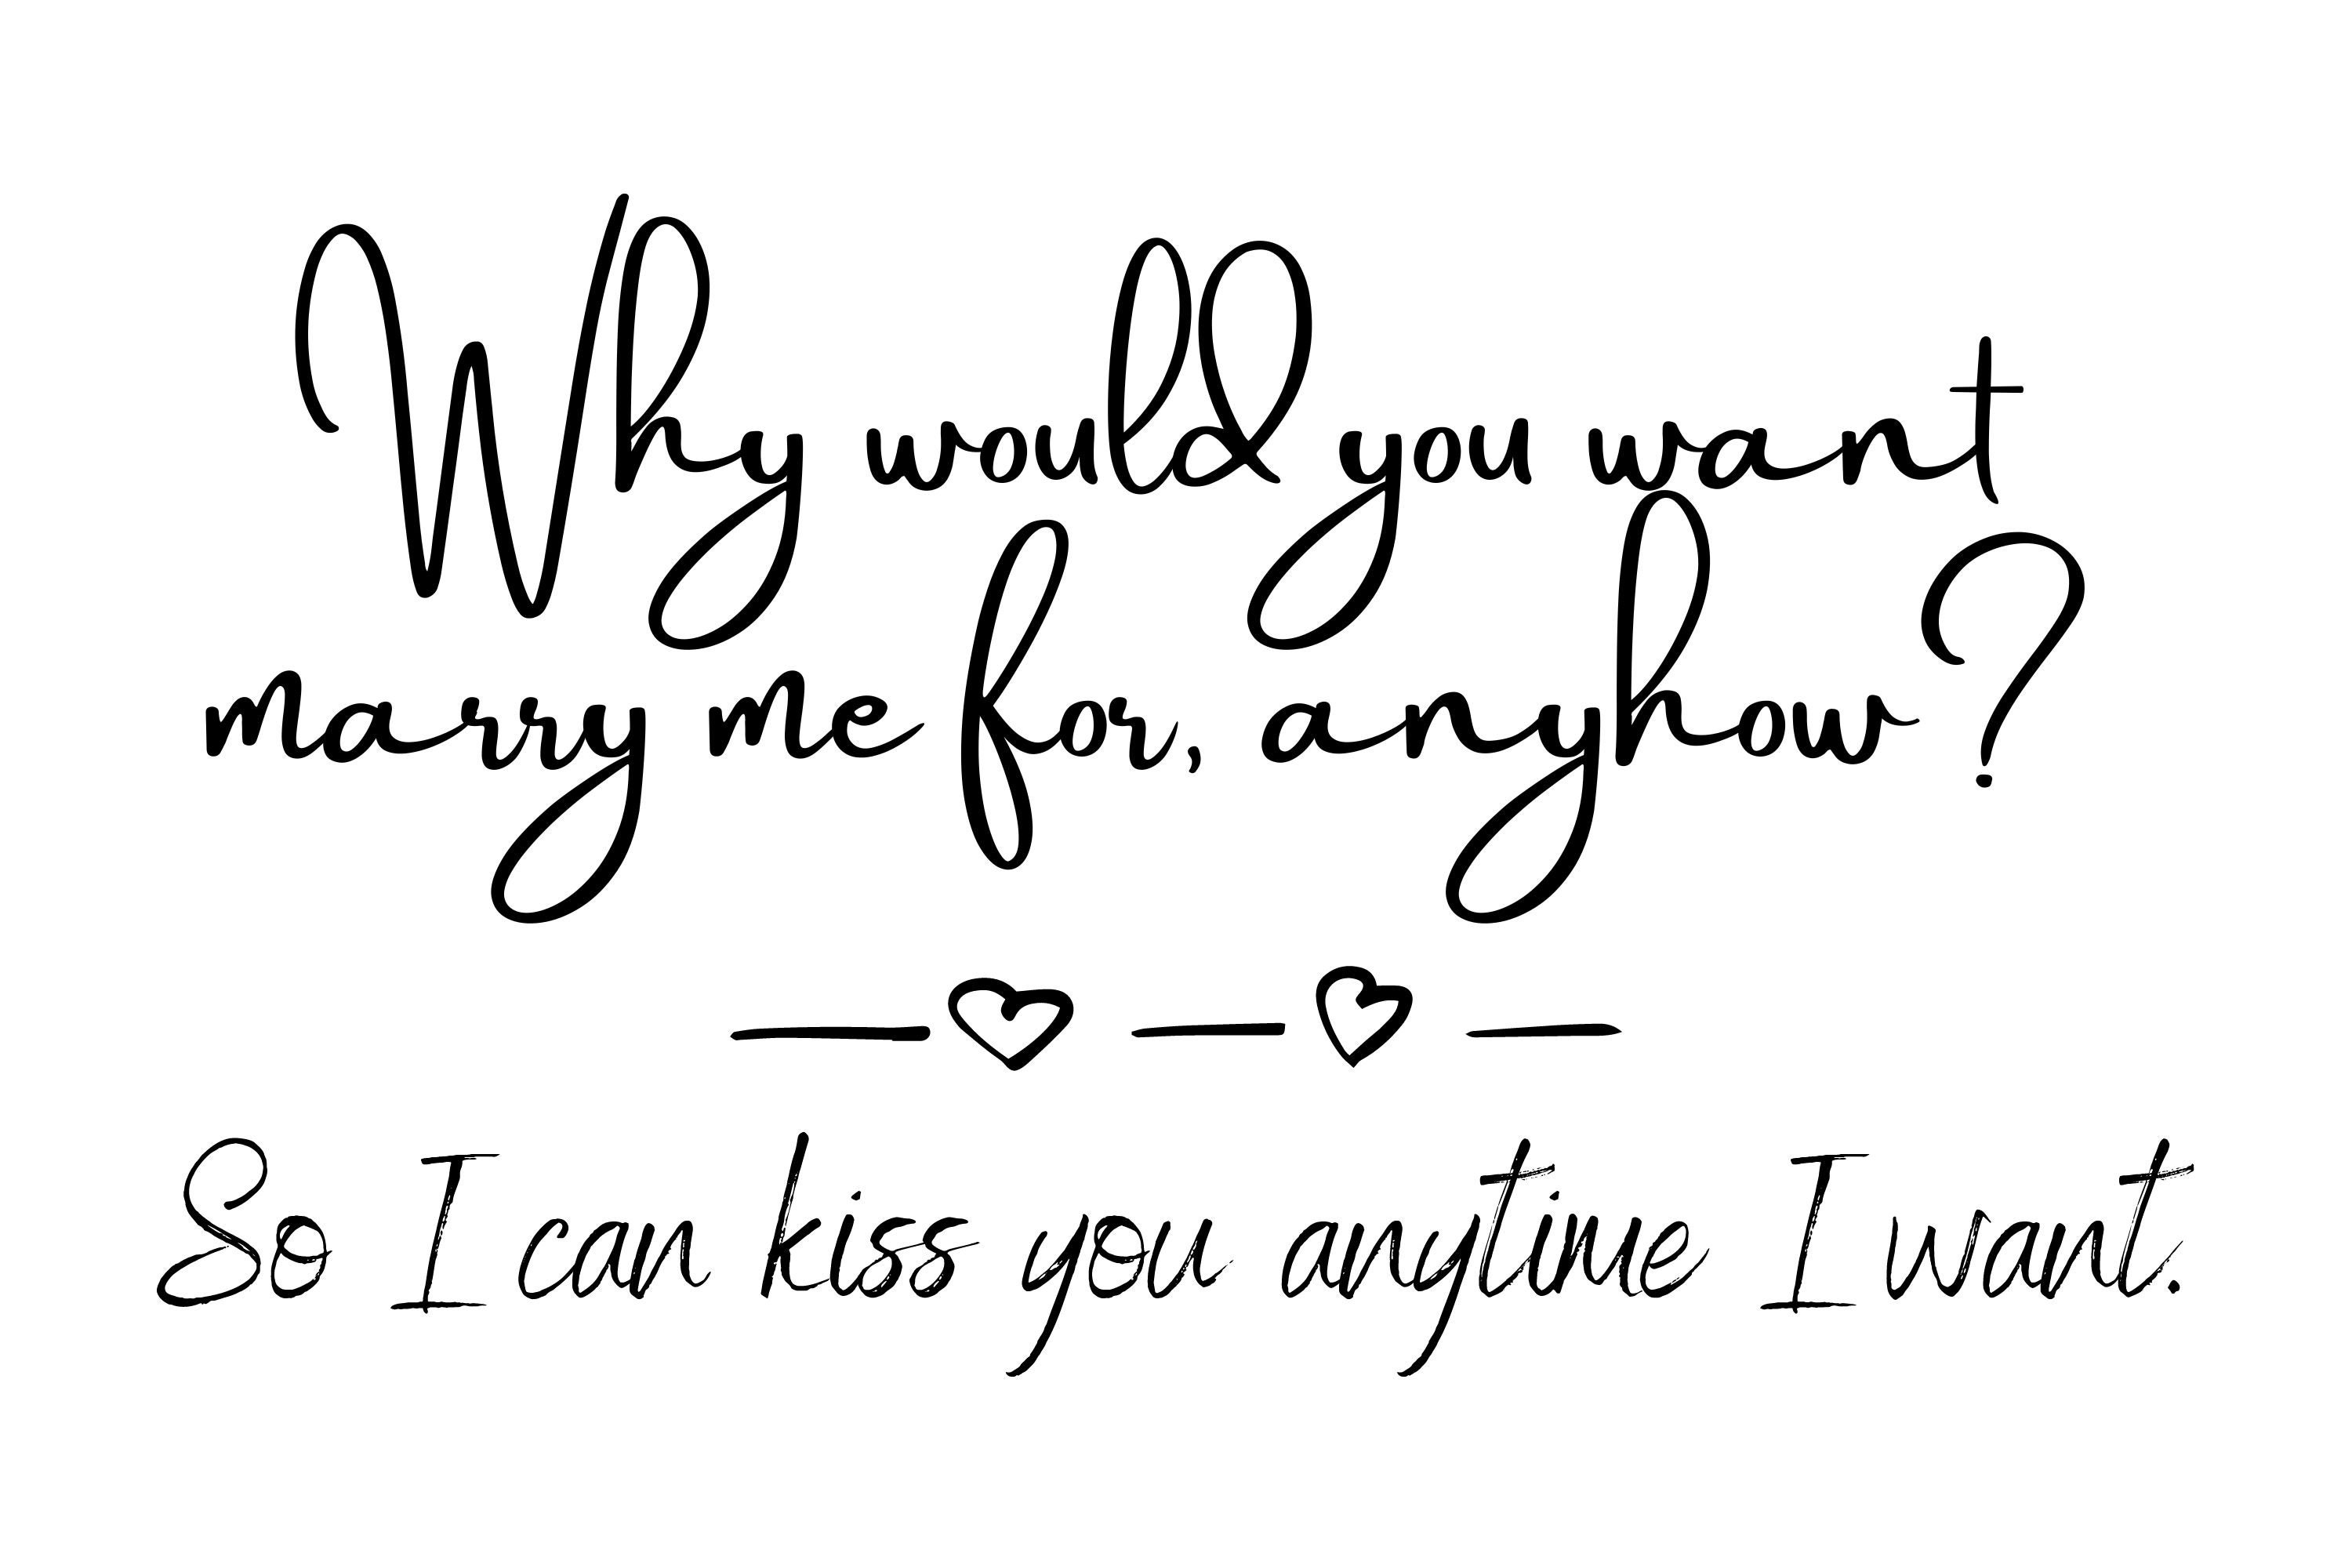 Why would you want
marry me for, anyhow?
So I can kiss you anytime I want.